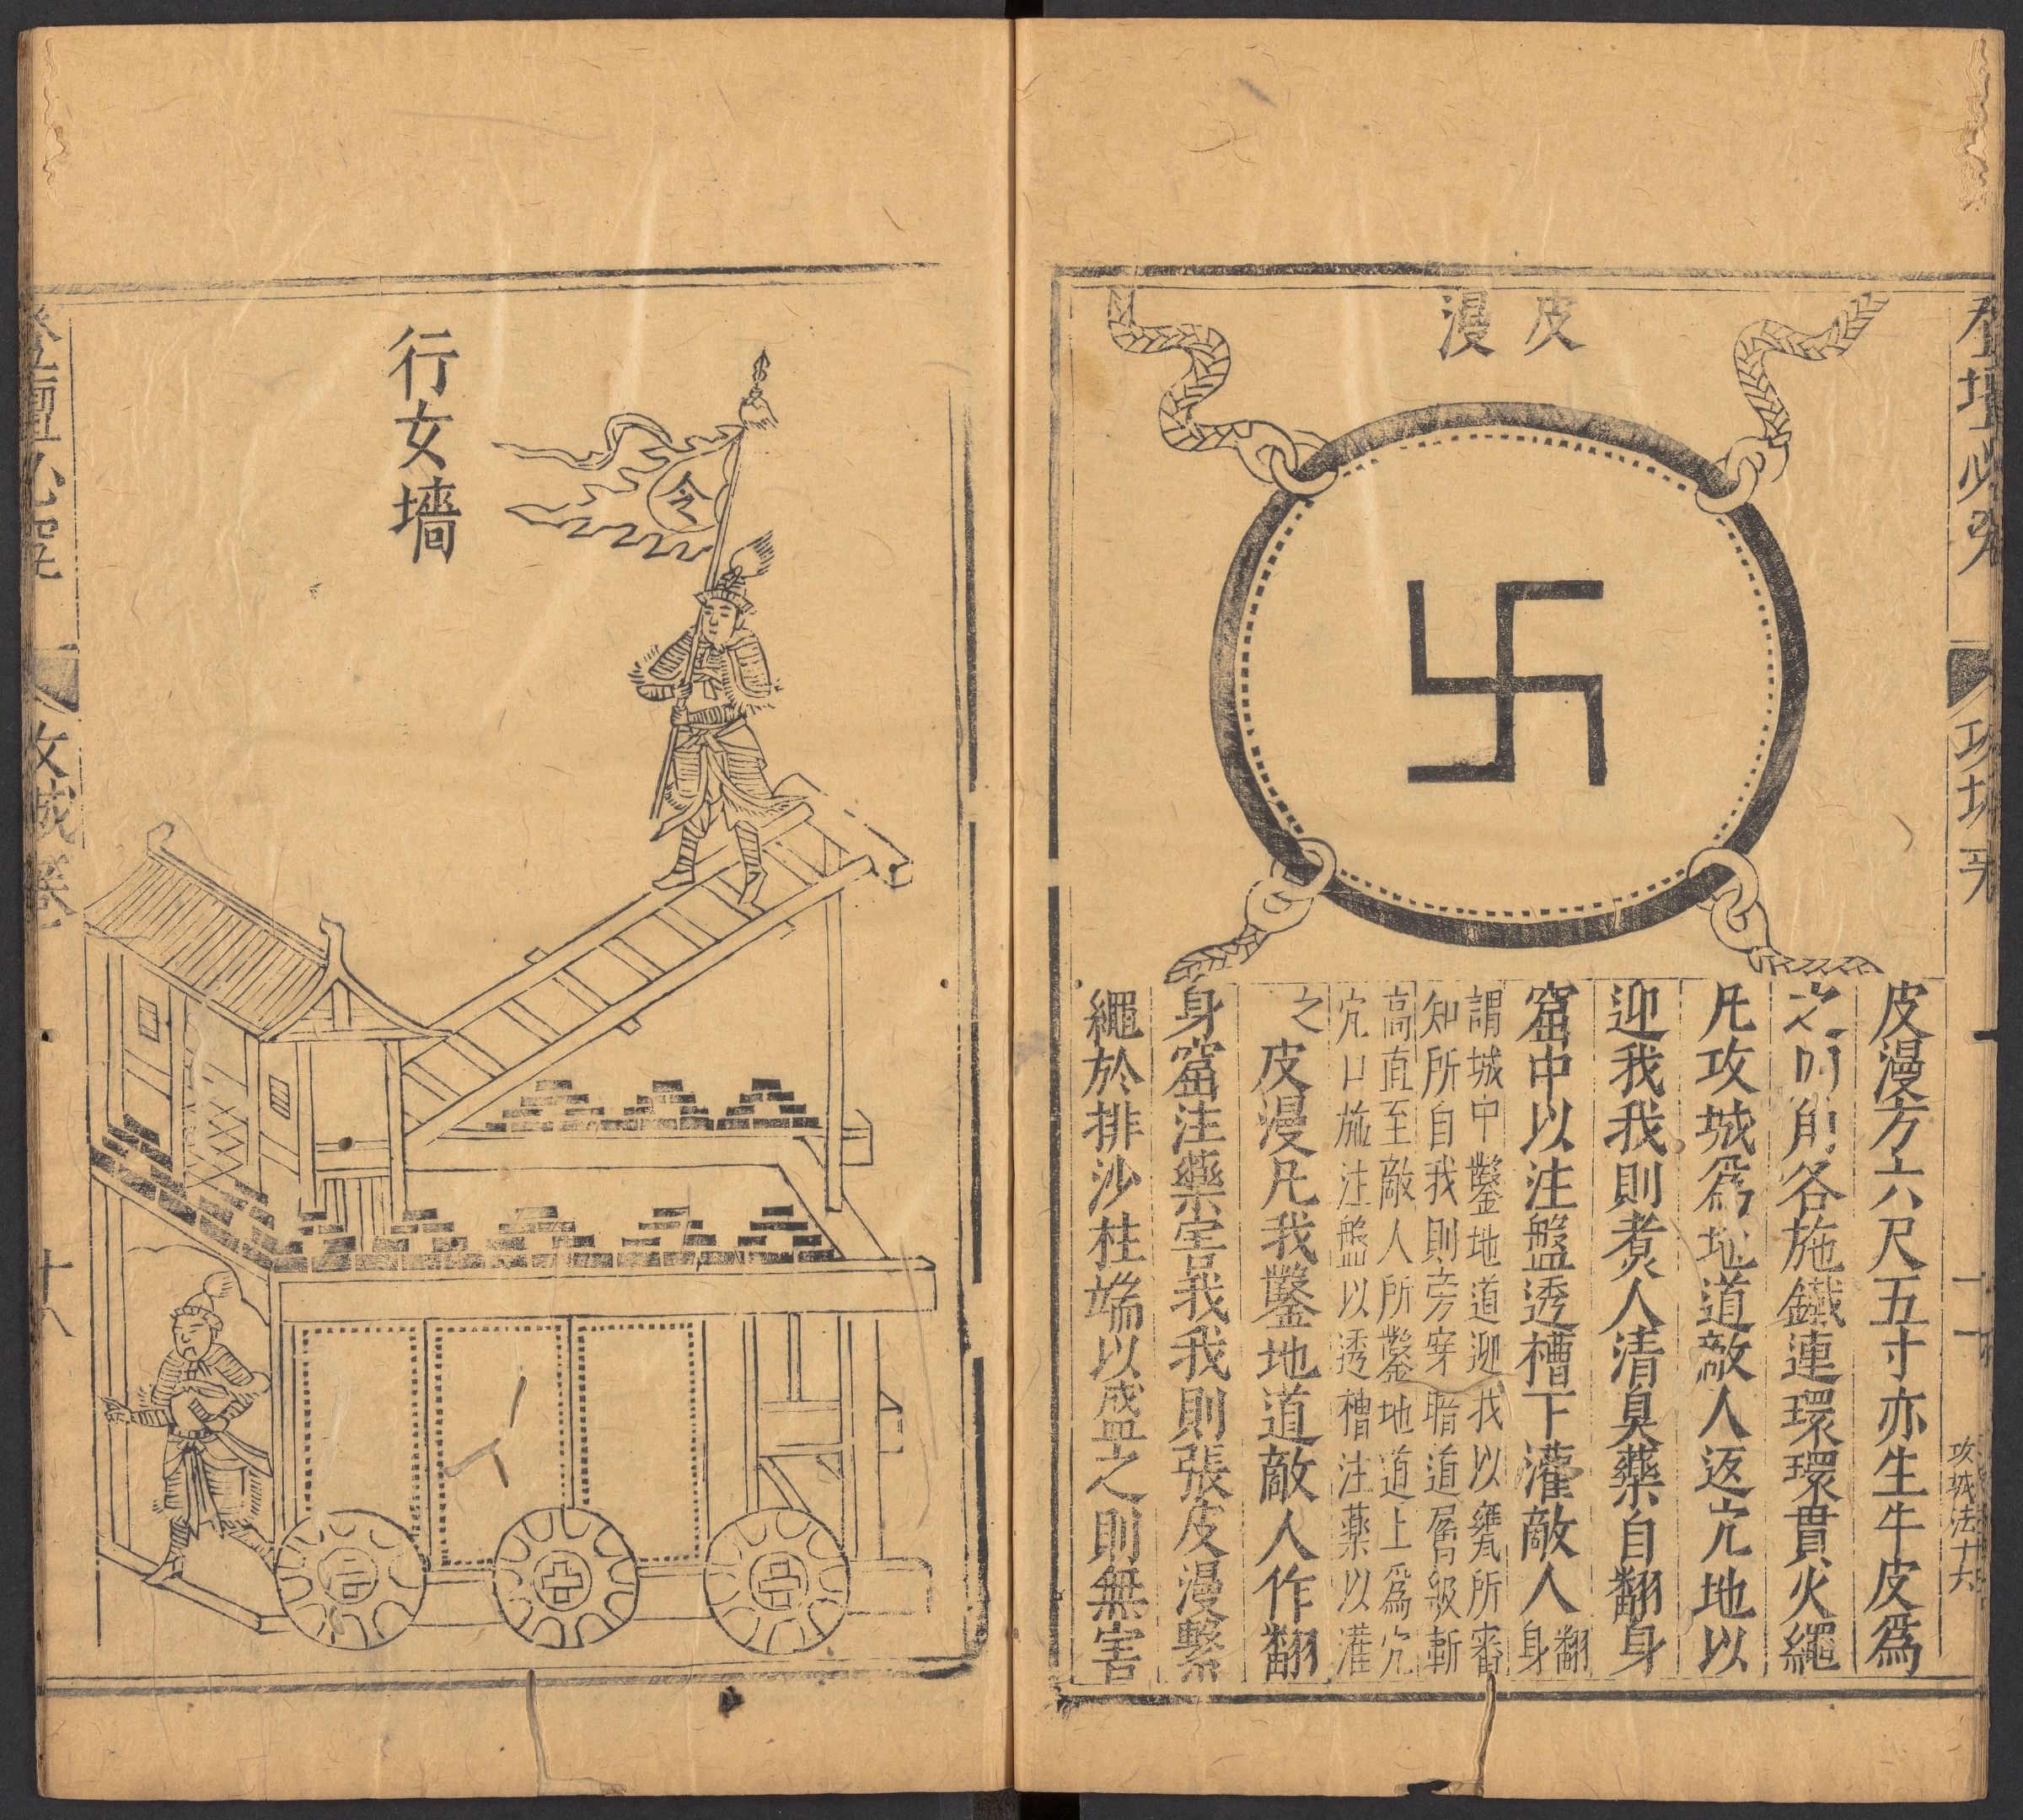 攻城法十六
皮漫
皮漫方六尺五寸亦生牛皮爲
之四角各施鐵連環環貫火繩
凡攻城爲地道敵人返穴地以
迎我我則煮人清臭藥自翻身
窟中以注盤透槽下灌敵人翻身
謂城中鑿地道迎我以甕所審
知所自我則旁穿暗道層級斬
高直至敵人所鑿地道上爲穴
穴口施注盤以透槽注藥以灌
之
皮漫凡我鑿地道敵人作翻
身窟注藥害我我則張皮漫繫
繩於排沙柱端以盛之則無害
行女墻
令
十八